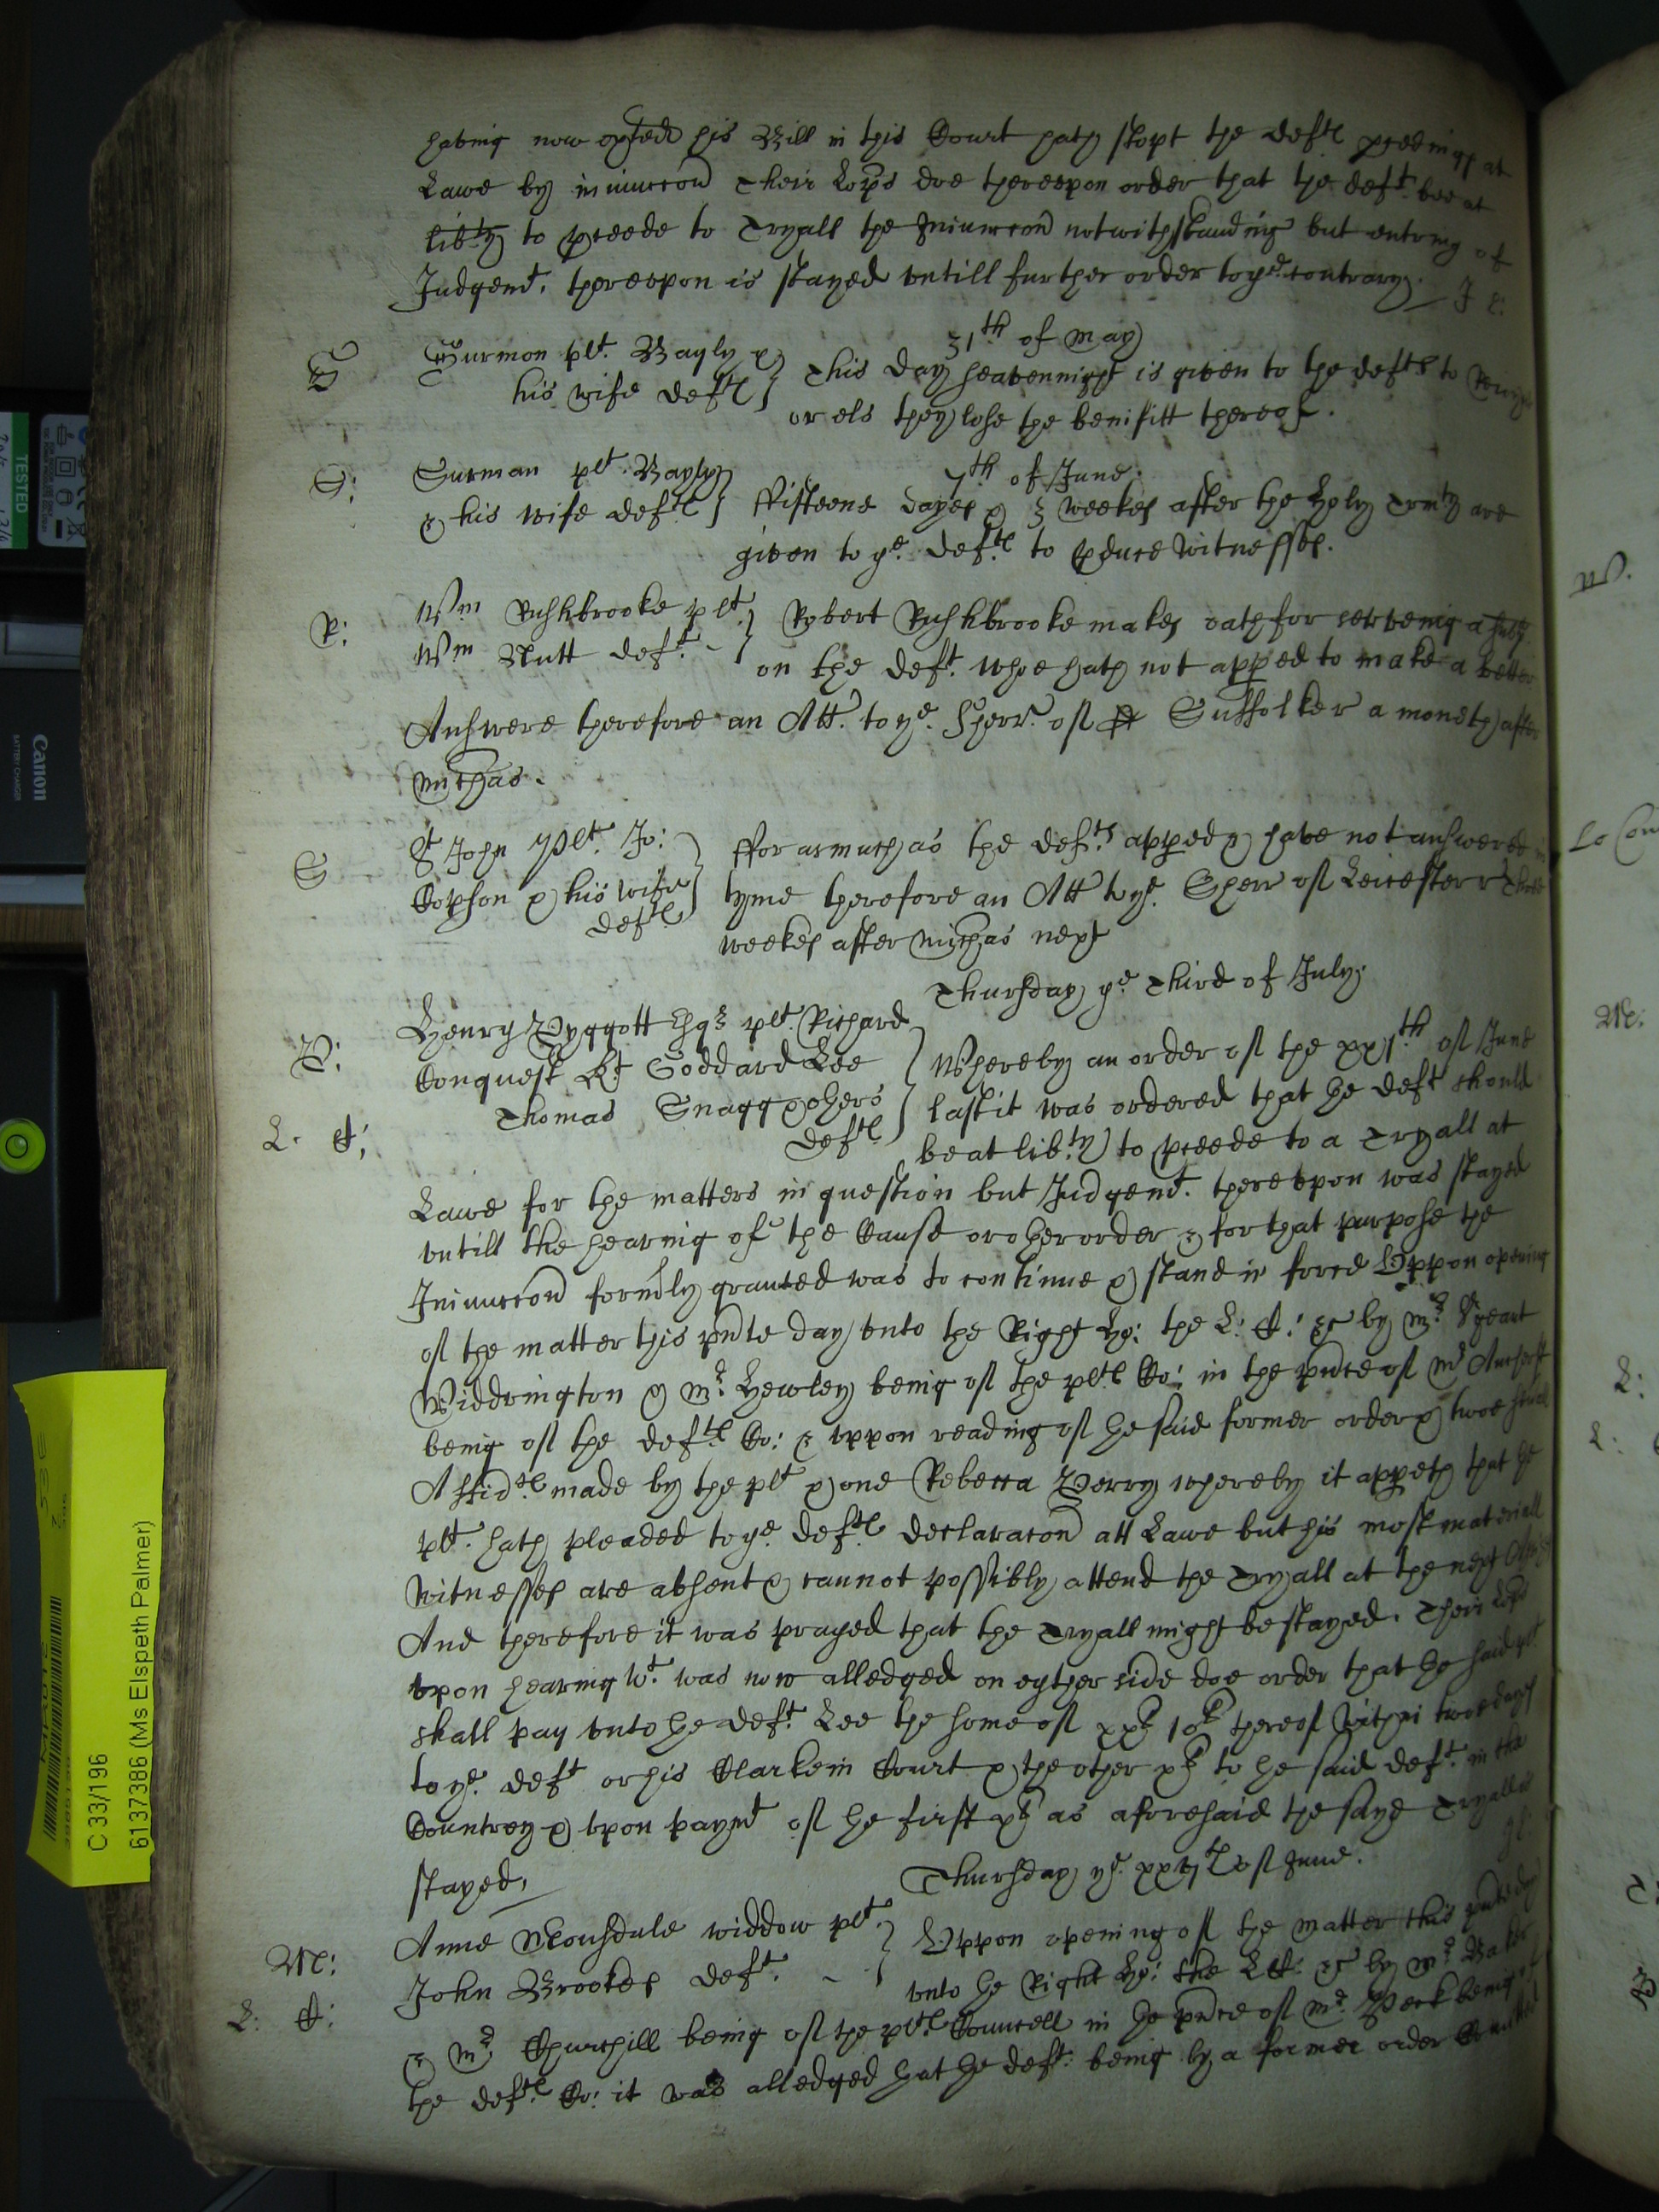 having now exhibited his Bill in this Court hath stopt the deftes pceedings at
Lawe by iniunccon Their Lopps doe therevpon order that the deft bee at
libty to pceede to Tryall the Iniunccon notwithstanding but entring of
Judgemt. therevpon is stayed vntill further order to ye contrary.
31th of May
S Surmon plt. Bayly &
his wife deftes
This day seavennight is given to the deftes to
or els they lose the benifitt thereof.
7th of June.
S: Surman plt. Bayly
& his wife deftes
ffifteene dayes & 3 weekes after the Holy Trinity are
given to ye. deftes to pduce witnesses.
R: Wm Rushbrooke plt.
Wm Nutt deft.
Robert Rushbrooke makes oath for serveing a
on the deft. whoe hath not apped to make a better
Answere therefore an Att. to ye. Sherr. of Suffolke a moneth after
Michas.
S St John plt. Jo:
Copson & his wife
deftes
fforasmuch as the defts apped & have not answered in
tyme therefore an Att to ye. Sherr of Leicester three
weekes after Michas next
Thursday ye Third of July.
P: Henry Pyggott Esqr plt. Richard
Conquest Goddard Lee
Thomas Snagg & others
deftes
L. C:
Whereby an order of the xxith of June
last it was ordered that the deft should
be at libty to pceede to a Tryall at
Lawe for the matters in question but Judgemt. therevpon was stayed
vntill the hearing of the Cause or other order & for that purpose the
Iniunccon formrly graunted was to continue & stand in force Vppon opening
of the matter this pnte day vnto the Right Ho: the L: C: &c by Mr. Sjeant
Widdrington & Mr. Hewley being of the pltes Co: in the pnce of Mr Amherst
being of the deftes Co: & vppon reading of the said former order & twoe seuall
Affidtes made by the plt & one Rebecca Perry whereby it appeth that the
plt. hath pleaded to ye. deftes declaracon att Lawe but his most materiall
witnesses are absent & cannot possibly attend the Tryall at the next
And therefore it was prayed that the Tryall might be stayed. Their Lopps
vpon hearing wt. was now alledged on eyther side doe order that the said plt
shall pay vnto the deft. Lee the some of xxli 10li thereof within twoe dayes
to ye. deft or his Clarke in Court & the other xli to the said deft. in the
Countrey & vpon paymt of the first xli as aforesaid the sayd Tryall is
stayed,
Thursday ye. xxvith of June.
M: Anne Mounsdale widdow plt.
John Brookes deft.
L: C:
Vppon opening of the matter this pnte day
vnto the Right Ho: the L C: &c by Mr Baker
& Mr. Churchill being of the pltes Councell in the pnce of Mr. Peck being of
the deftes Co: it was alledged that the deft. being by a former order
W.
M:
L:
L:
TESTED
Canon
BATTERY CHARGER
C 33/196
6137386 (Ms Elspeth Palmer)